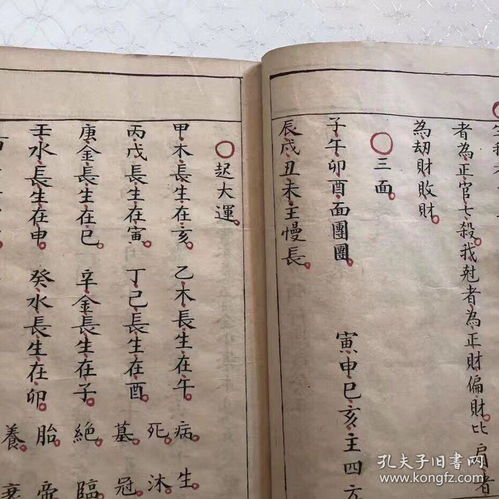 者為正官七殺我尅者為正財偏財比肩者
為劫財敗財
○三面
子午卯酉面團圞 寅申巳亥主四方
辰戌丑未主慢長
○起大運
甲木長生在亥 乙木長生在午 病 生
丙戊長生在寅 丁己長生在酉 死 沐
庚金長生在巳 辛金長生在子 墓 冠
壬水長生在申 癸水長生在卯 絕 臨
胎 帝
養
孔夫子旧书网